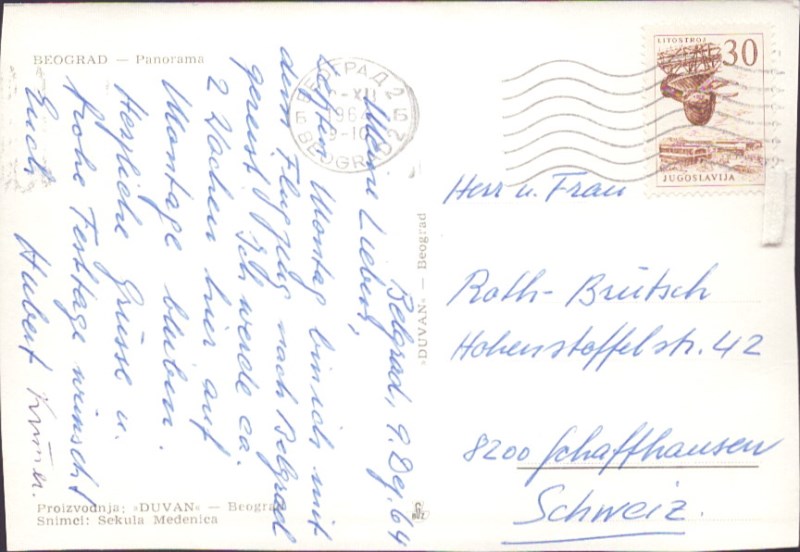 BEOGRAD — Panorama
Belgrad, 9. Dez. 64
Meine Lieben,
Letzten Montag bin ich mit
dem Flugzeug nach Belgrad
gereist. Ich werde ca.
2 Wochen hier auf
Montage bleiben.
Herzliche Grüsse u.
frohe Festtage wünscht
Euch
Hubert
Proizvodnja: »DUVAN« — Beograd
Snimci: Sekula Medenica
»DUVAN« — Beograd
БЕОГРАД 2
-XII
1964
9-10
BEOGRAD 2
LITOSTROJ
30
JUGOSLAVIJA
Herr u. Frau
Roth-Brütsch
Hohenstoffelstr. 42
8200 Schaffhausen
Schweiz.